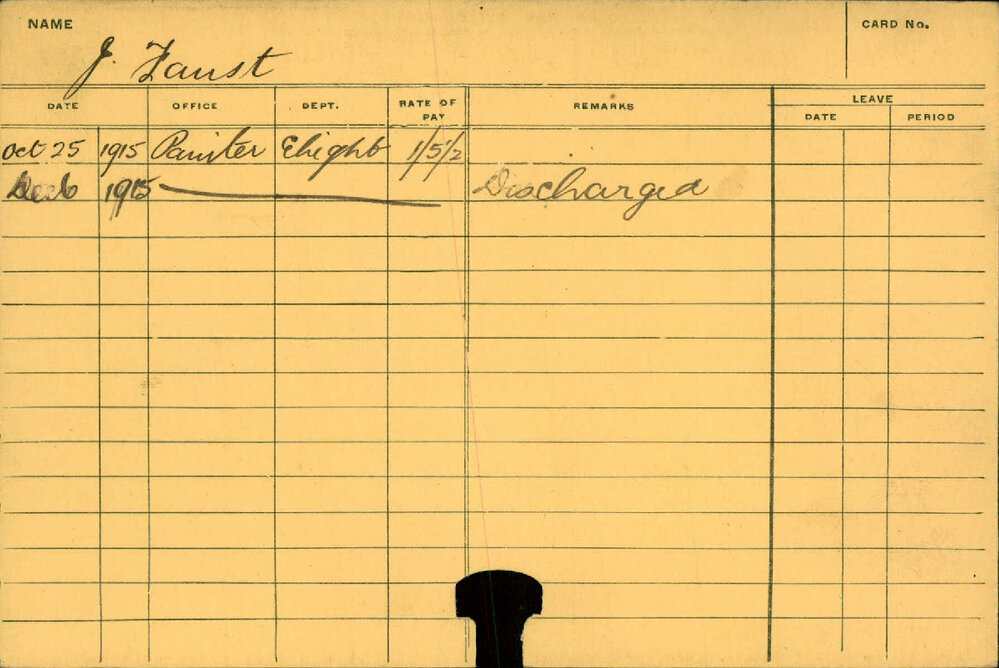 NAME
CARD No.
J. Faust
DATE OFFICE DEPT. RATE OF PAY REMARKS LEAVE
DATE PERIOD
Oct 25 1915 Painter Elight 1/5/2
Dec 6 1915 Discharged